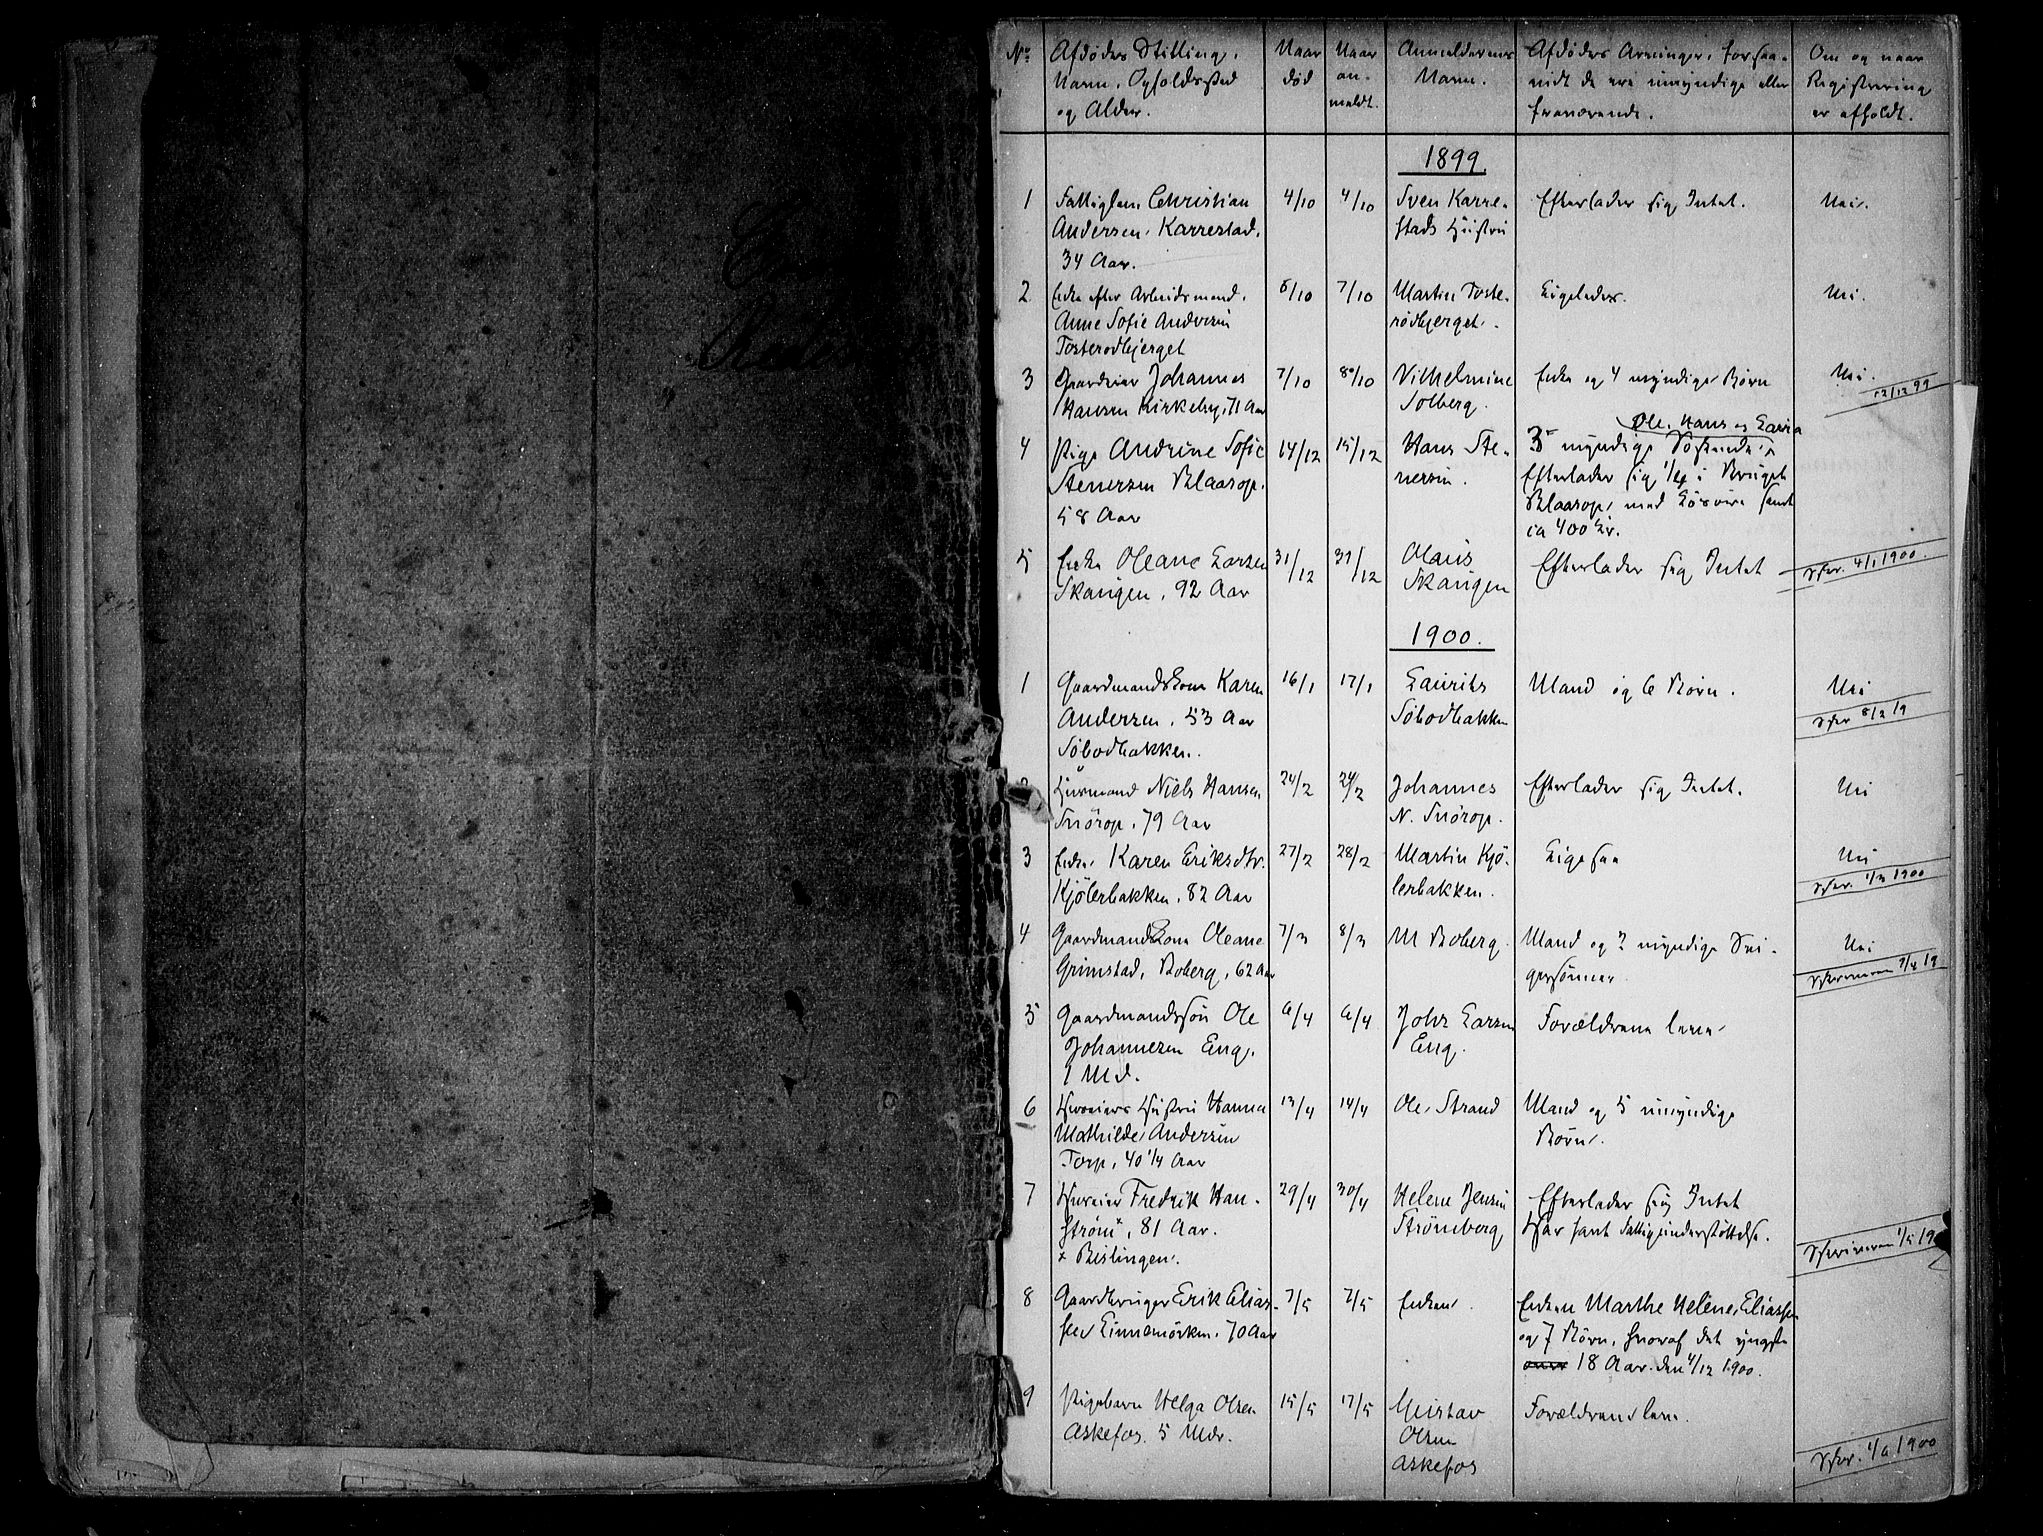 No
Afdødes Stilling,
Navn, Opholdssted
og Alder.
Naar
død
Naar
an-
meldt.
Anmelderens
Navn.
Afdødes Arvinger, forsaa-
vidt de ere umyndige eller
fraværende.
Om og naar
Registrering
er afholdt.
1899.
1
Fattiglem Christian
Andersen, Karrestad,
34 Aar.
4/10
4/10
Sven Karre-
stads Hustru
Efterlader sig Intet.
Nei.
2
Enke efter Arbeidsmand,
Anne Sofie Andersen
Tosterødbjerget
6/10
7/10
Martin Toste-
rødbjerget.
Ligeledes.
Nei.
3
Gaardeier Johannes
Hansen Kirkeby, 71 Aar
7/10
8/10
Vilhelmine
Solberg.
Enke og 4 myndige Børn
Nei.
12/12 99
4
Pige Andrine Sofie
Stenersen Blaarop.
58 Aar
14/12
15/12
Hans Ste-
nersen.
Ole, Hans og
3 myndige Søskende
Efterlader sig 1/4 i Bruget
Blaarop, med Løsøre samt
ca 400 Kr.
5
Enke Oleane Larsen
Skaugen, 92 Aar
31/12
31/12
Olaus
Skaugen
Efterlader sig Intet
4/1 1900.
1900.
1
Gaardmandskone Karen
Andersen, 53 Aar
Søbodbakken.
16/1
17/1
Laurits
Søbodbakken
Mand og 6 Børn.
Nei
8/2 19
Husmand Niels Hansen
Snørop, 79 Aar
24/2
24/2
Johannes
N. Snørop.
Efterlader sig Intet.
Nei
3
Enke Karen Eriksdtr.
Kjølerbakken, 82 Aar
27/2
28/2
Martin Kjø-
lerbakken.
Ligesaa
Nei
1/3 1900
4
Gaardmandskone Oleane
Grimstad, Boberg, 62 Aar
7/3
8/3
M Boberg.
Mand og 2 myndige Svi-
gersønner
Nei
7/4 19
5
Gaardmandssøn Ole
Johannesen Eng,
1 Md.
6/4
6/4
Johs Larsen
Eng.
Forældrene leve
6
Hustru Hanna
Mathilde Andersen
Torp, 40 1/4 Aar
13/4
14/4
Ole Strand
Mand og 5 umyndige
Børn.
7
Fredrik Han-
strøm x, 81 Aar.
x Bislingen.
29/4
30/4
Helene Jensen
Strømberg
Efterlader sig Intet
Har havt Fattigunderstøttelse.
1/5 19
8
Gaardbruger Erik Elias-
sen Linnemørken, 70 Aar
7/5
7/5
Enken.
Enken Marthe Helene Eliassen
og 7 Børn, hvoraf det yngste
18 Aar den 4/12 1900.
9
Pigebarn Helga Olsen
Askefos. 5 Mdr.
15/5
17/5
Gustav
Olsen
Askefos
Forældrene leve.
1/6 1900